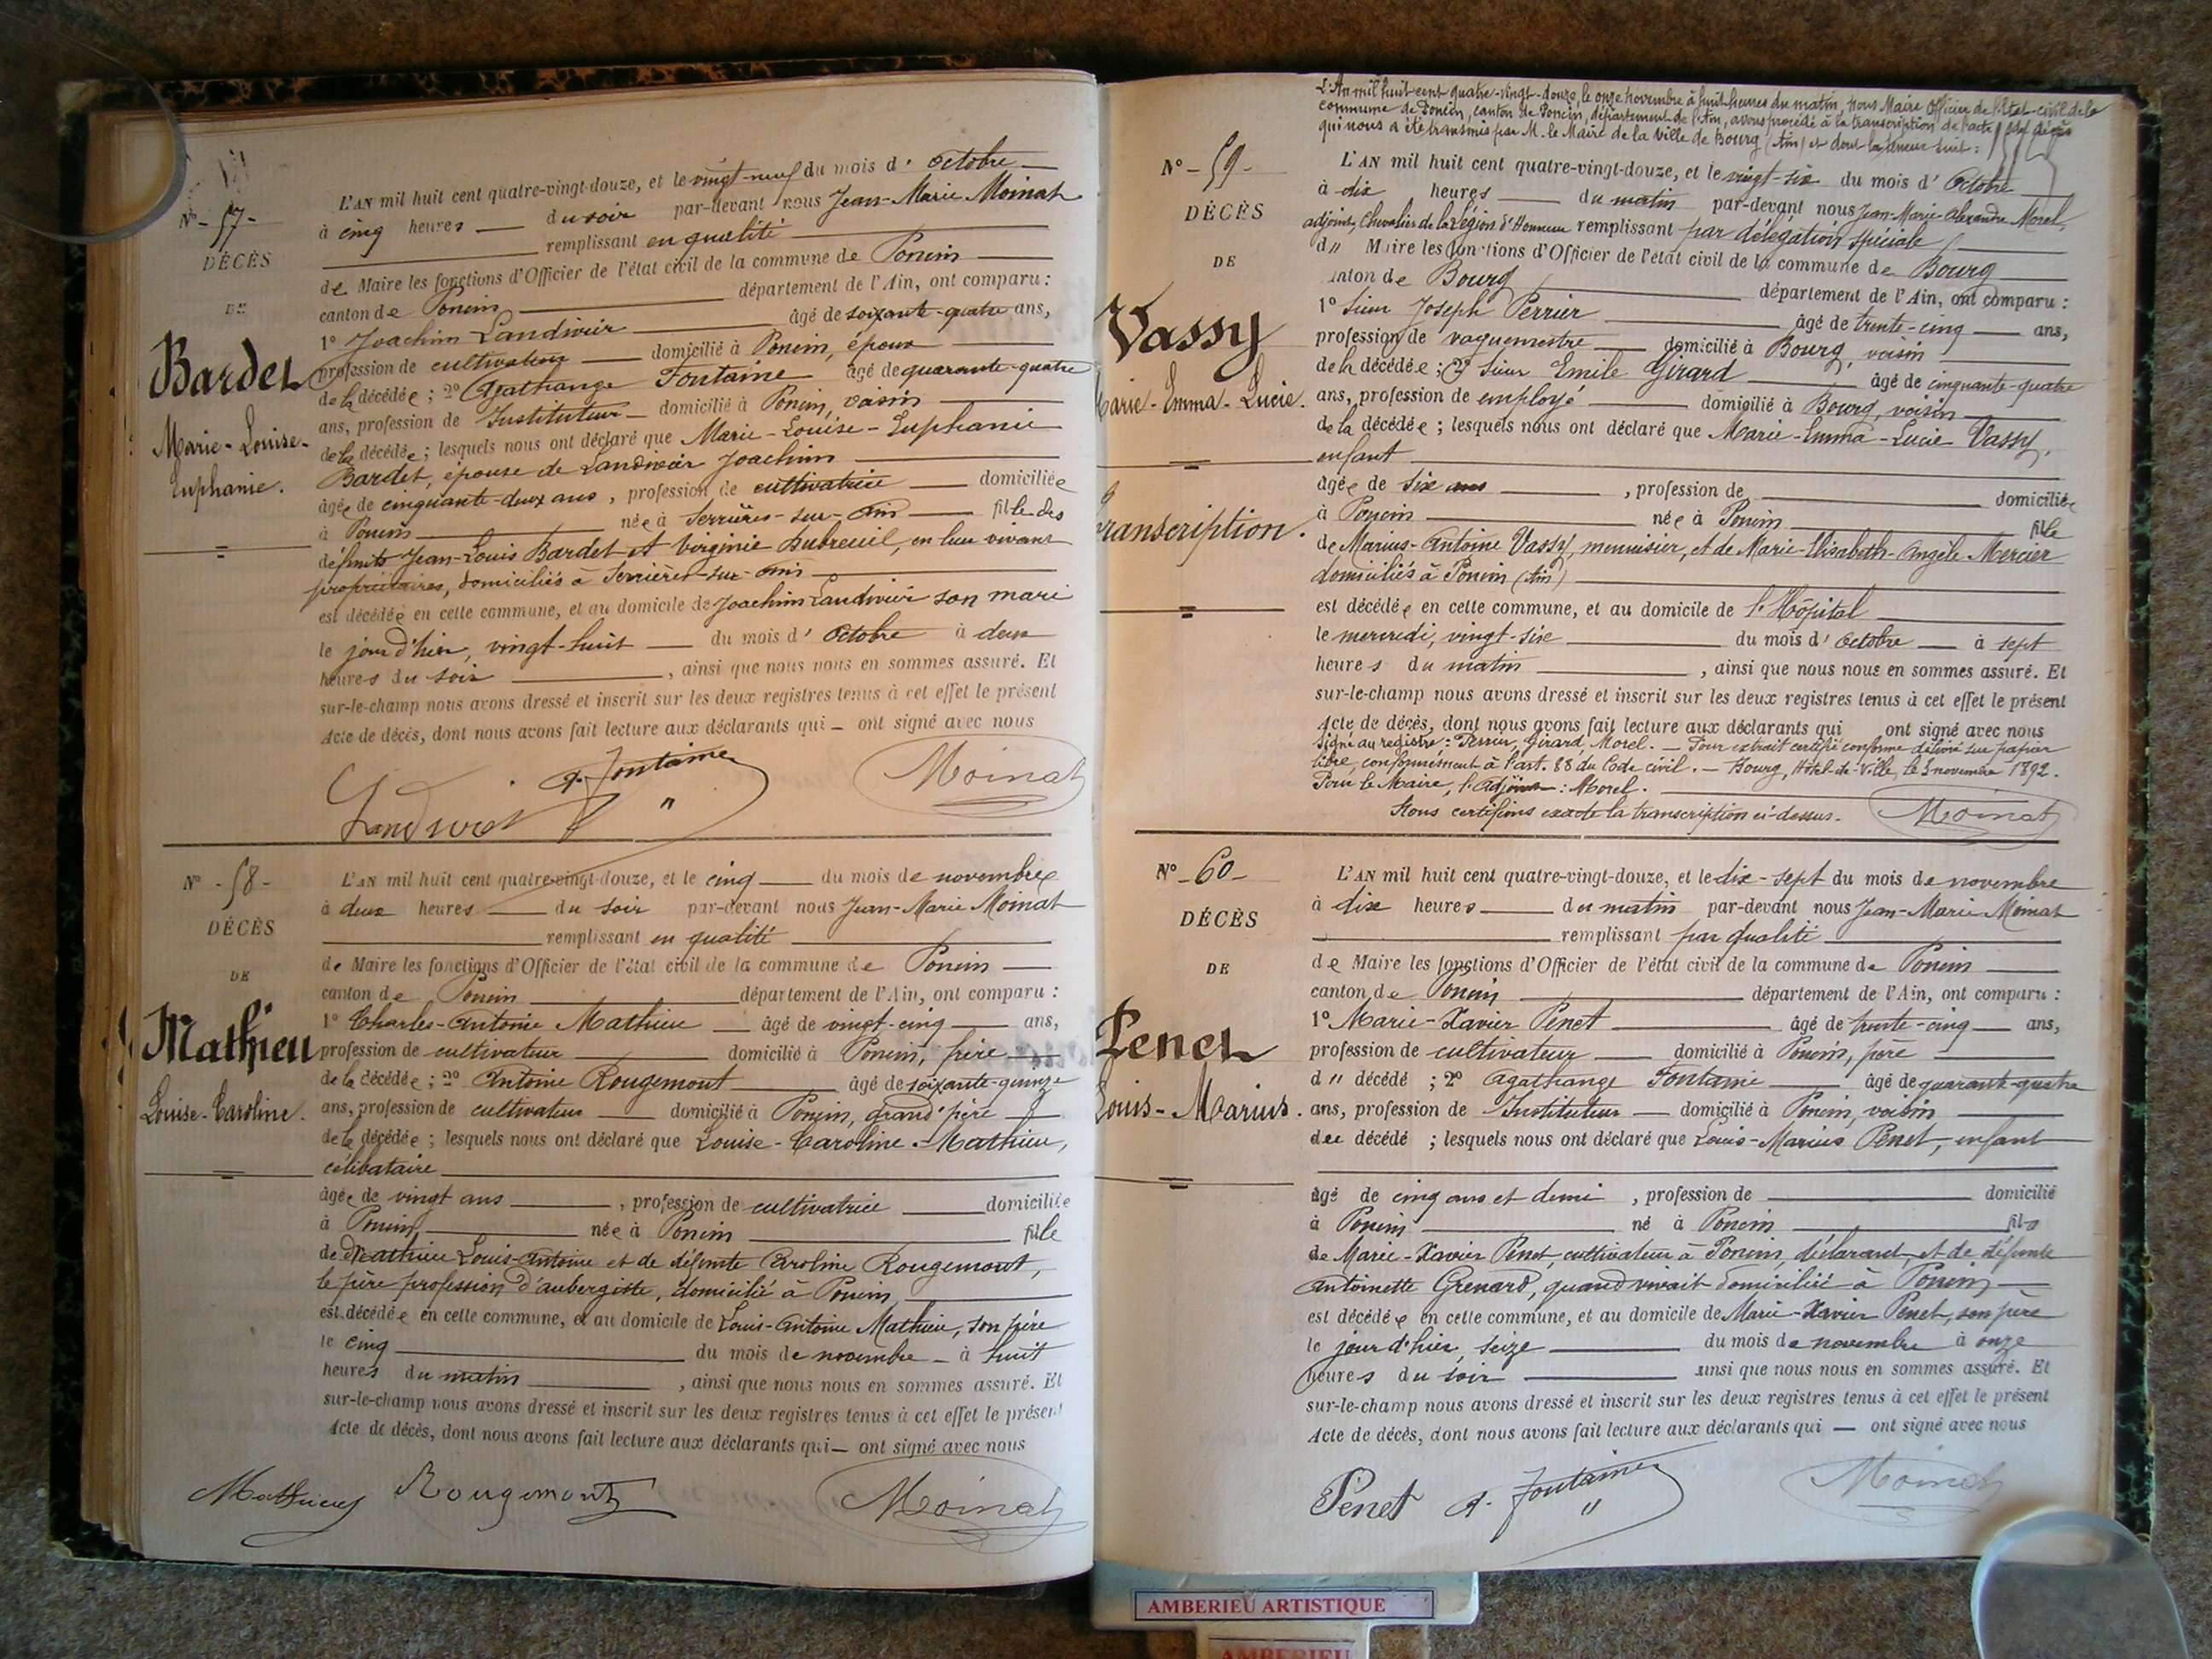 N° - 57 -
DÉCÈS
DE
Bardet
Marie-Louise-
Euphanie.
L'AN mil huit cent quatre-vingt-douze, et le vingt-neuf du mois d' Octobre
à cinq heures du soir par-devant nous Jean-Marie Moinat
remplissant en qualité
de Maire les fonctions d'Officier de l'état civil de la commune de Poncin
canton de Poncin département de l'Ain, ont comparu :
1° Joachim Landivier âgé de soixante-quatre ans,
profession de cultivateur domicilié à Poncin, époux
de la décédée ; 2° Agathange Fontaine âgé de quarante-quatre
ans, profession de Instituteur domicilié à Poncin, voisin
de la décédée ; lesquels nous ont déclaré que Marie-Louise-Euphanie
Bardet, épouse de Landivier Joachim
âgée de cinquante-deux ans, profession de cultivatrice domiciliée
à Poncin née à Serrières-sur-Ain fille des
défunts Jean-Louis Bardet et Virginie Dubreuil, en leur vivant
propriétaires, domiciliés à Serrières-sur-Ain
est décédée en cette commune, et au domicile de Joachim Landivier son mari
le jour d'hier, vingt-huit du mois d' Octobre à deux
heures du soir, ainsi que nous nous en sommes assuré. Et
sur-le-champ nous avons dressé et inscrit sur les deux registres tenus à cet effet le présent
Acte de décès, dont nous avons fait lecture aux déclarants qui — ont signé avec nous
A. Fontaine Moinat
N° - 58 -
DÉCÈS
DE
Mathieu
Louise-Caroline.
L'AN mil huit cent quatre-vingt-douze, et le cinq du mois de novembre
à deux heures du soir par-devant nous Jean-Marie Moinat
remplissant en qualité
de Maire les fonctions d'Officier de l'état civil de la commune de Poncin
canton de Poncin département de l'Ain, ont comparu :
1° Charles-Antoine Mathieu âgé de vingt-cinq ans,
profession de cultivateur domicilié à Poncin, frère
de la décédée ; 2° Antoine Rougemont âgé de soixante-quinze
ans, profession de cultivateur domicilié à Poncin, grand'père
de la décédée ; lesquels nous ont déclaré que Louise-Caroline Mathieu,
célibataire
âgée de vingt ans, profession de cultivatrice domiciliée
à Poncin, née à Poncin fille
de Mathieu Louis-Antoine et de défunte Caroline Rougemont,
le père profession d'aubergiste, domicilié à Poncin,
est décédée en cette commune, et au domicile de Louis-Antoine Mathieu, son père
le cinq du mois de novembre à huit
heures du matin, ainsi que nous nous en sommes assuré. Et
sur-le-champ nous avons dressé et inscrit sur les deux registres tenus à cet effet le présent
Acte de décès, dont nous avons fait lecture aux déclarants qui — ont signé avec nous
Mathieu Rougemont Moinat
L'An mil huit cent quatre-vingt-douze, le onze novembre à huit heures du matin, Nous Maire Officier de l'Etat-civil de la
commune de Poncin, canton de Poncin, département de l'Ain, avons procédé à la transcription de l'acte de décès
qui nous a été transmis par M. le Maire de la Ville de Bourg (Ain) et dont la teneur suit :
N° - 59 -
DÉCÈS
DE
Vassy
Marie-Emma-Lucie.
Transcription.
L'AN mil huit cent quatre-vingt-douze, et le vingt-six du mois d' Octobre
à dix heures du matin par-devant nous Jean-Marie-Alexandre Morel,
adjoint, Chevalier de la Légion d'Honneur remplissant par délégation spéciale
d" Maire les fonctions d'Officier de l'état civil de la commune de Bourg
canton de Bourg département de l'Ain, ont comparu :
1° Sieur Joseph Perrier âgé de trente-cinq ans,
profession de vaguemestre domicilié à Bourg, voisin
de la décédée ; 2° Sieur Emile Girard âgé de cinquante-quatre
ans, profession de employé domicilié à Bourg, voisin
de la décédée ; lesquels nous ont déclaré que Marie-Emma-Lucie Vassy,
enfant
âgée de six ans, profession de domiciliée
à Poncin née à Poncin fille
de Marius-Antoine Vassy, menuisier, et de Marie-Elisabeth-Angèle Mercier
domiciliés à Poncin (Ain)
est décédée en cette commune, et au domicile de l'Hôpital
le mercredi, vingt-six du mois d' octobre à sept
heures du matin, ainsi que nous nous en sommes assuré. Et
sur-le-champ nous avons dressé et inscrit sur les deux registres tenus à cet effet le présent
Acte de décès, dont nous avons fait lecture aux déclarants qui ont signé avec nous
Signé au registre : Perrier, Girard, Morel. — Pour extrait certifié conforme délivré sur papier
libre, conformément à l'art. 88 du Code civil. — Bourg, Hôtel-de-Ville, le 3 novembre 1892.
Pour le Maire, l'Adjoint : Morel.
Nous certifions exacte la transcription ci-dessus. Moinat
N° - 60 -
DÉCÈS
DE
Penet
Louis-Marius.
L'AN mil huit cent quatre-vingt-douze, et le dix-sept du mois de novembre
à dix heures du matin par-devant nous Jean-Marie Moinat
remplissant par qualité
de Maire les fonctions d'Officier de l'état civil de la commune de Poncin
canton de Poncin département de l'Ain, ont comparu :
1° Marie-Xavier Penet âgé de trente-cinq ans,
profession de cultivateur domicilié à Poncin, père
d" décédé ; 2° Agathange Fontaine âgé de quarante-quatre
ans, profession de Instituteur domicilié à Poncin, voisin
du décédé ; lesquels nous ont déclaré que Louis-Marius Penet, enfant
âgé de cinq ans et demi, profession de domicilié
à Poncin né à Poncin fils
de Marie-Xavier Penet, cultivateur à Poncin, déclarant, et de défunte
Antoinette Grenard, quand vivait domiciliée à Poncin
est décédé en cette commune, et au domicile de Marie-Xavier Penet, son père
le jour d'hier, seize du mois de novembre à onze
heures du soir ainsi que nous nous en sommes assuré. Et
sur-le-champ nous avons dressé et inscrit sur les deux registres tenus à cet effet le présent
Acte de décès, dont nous avons fait lecture aux déclarants qui — ont signé avec nous
Penet A. Fontaine Moinat
AMBERIEU ARTISTIQUE
AMBERIEU